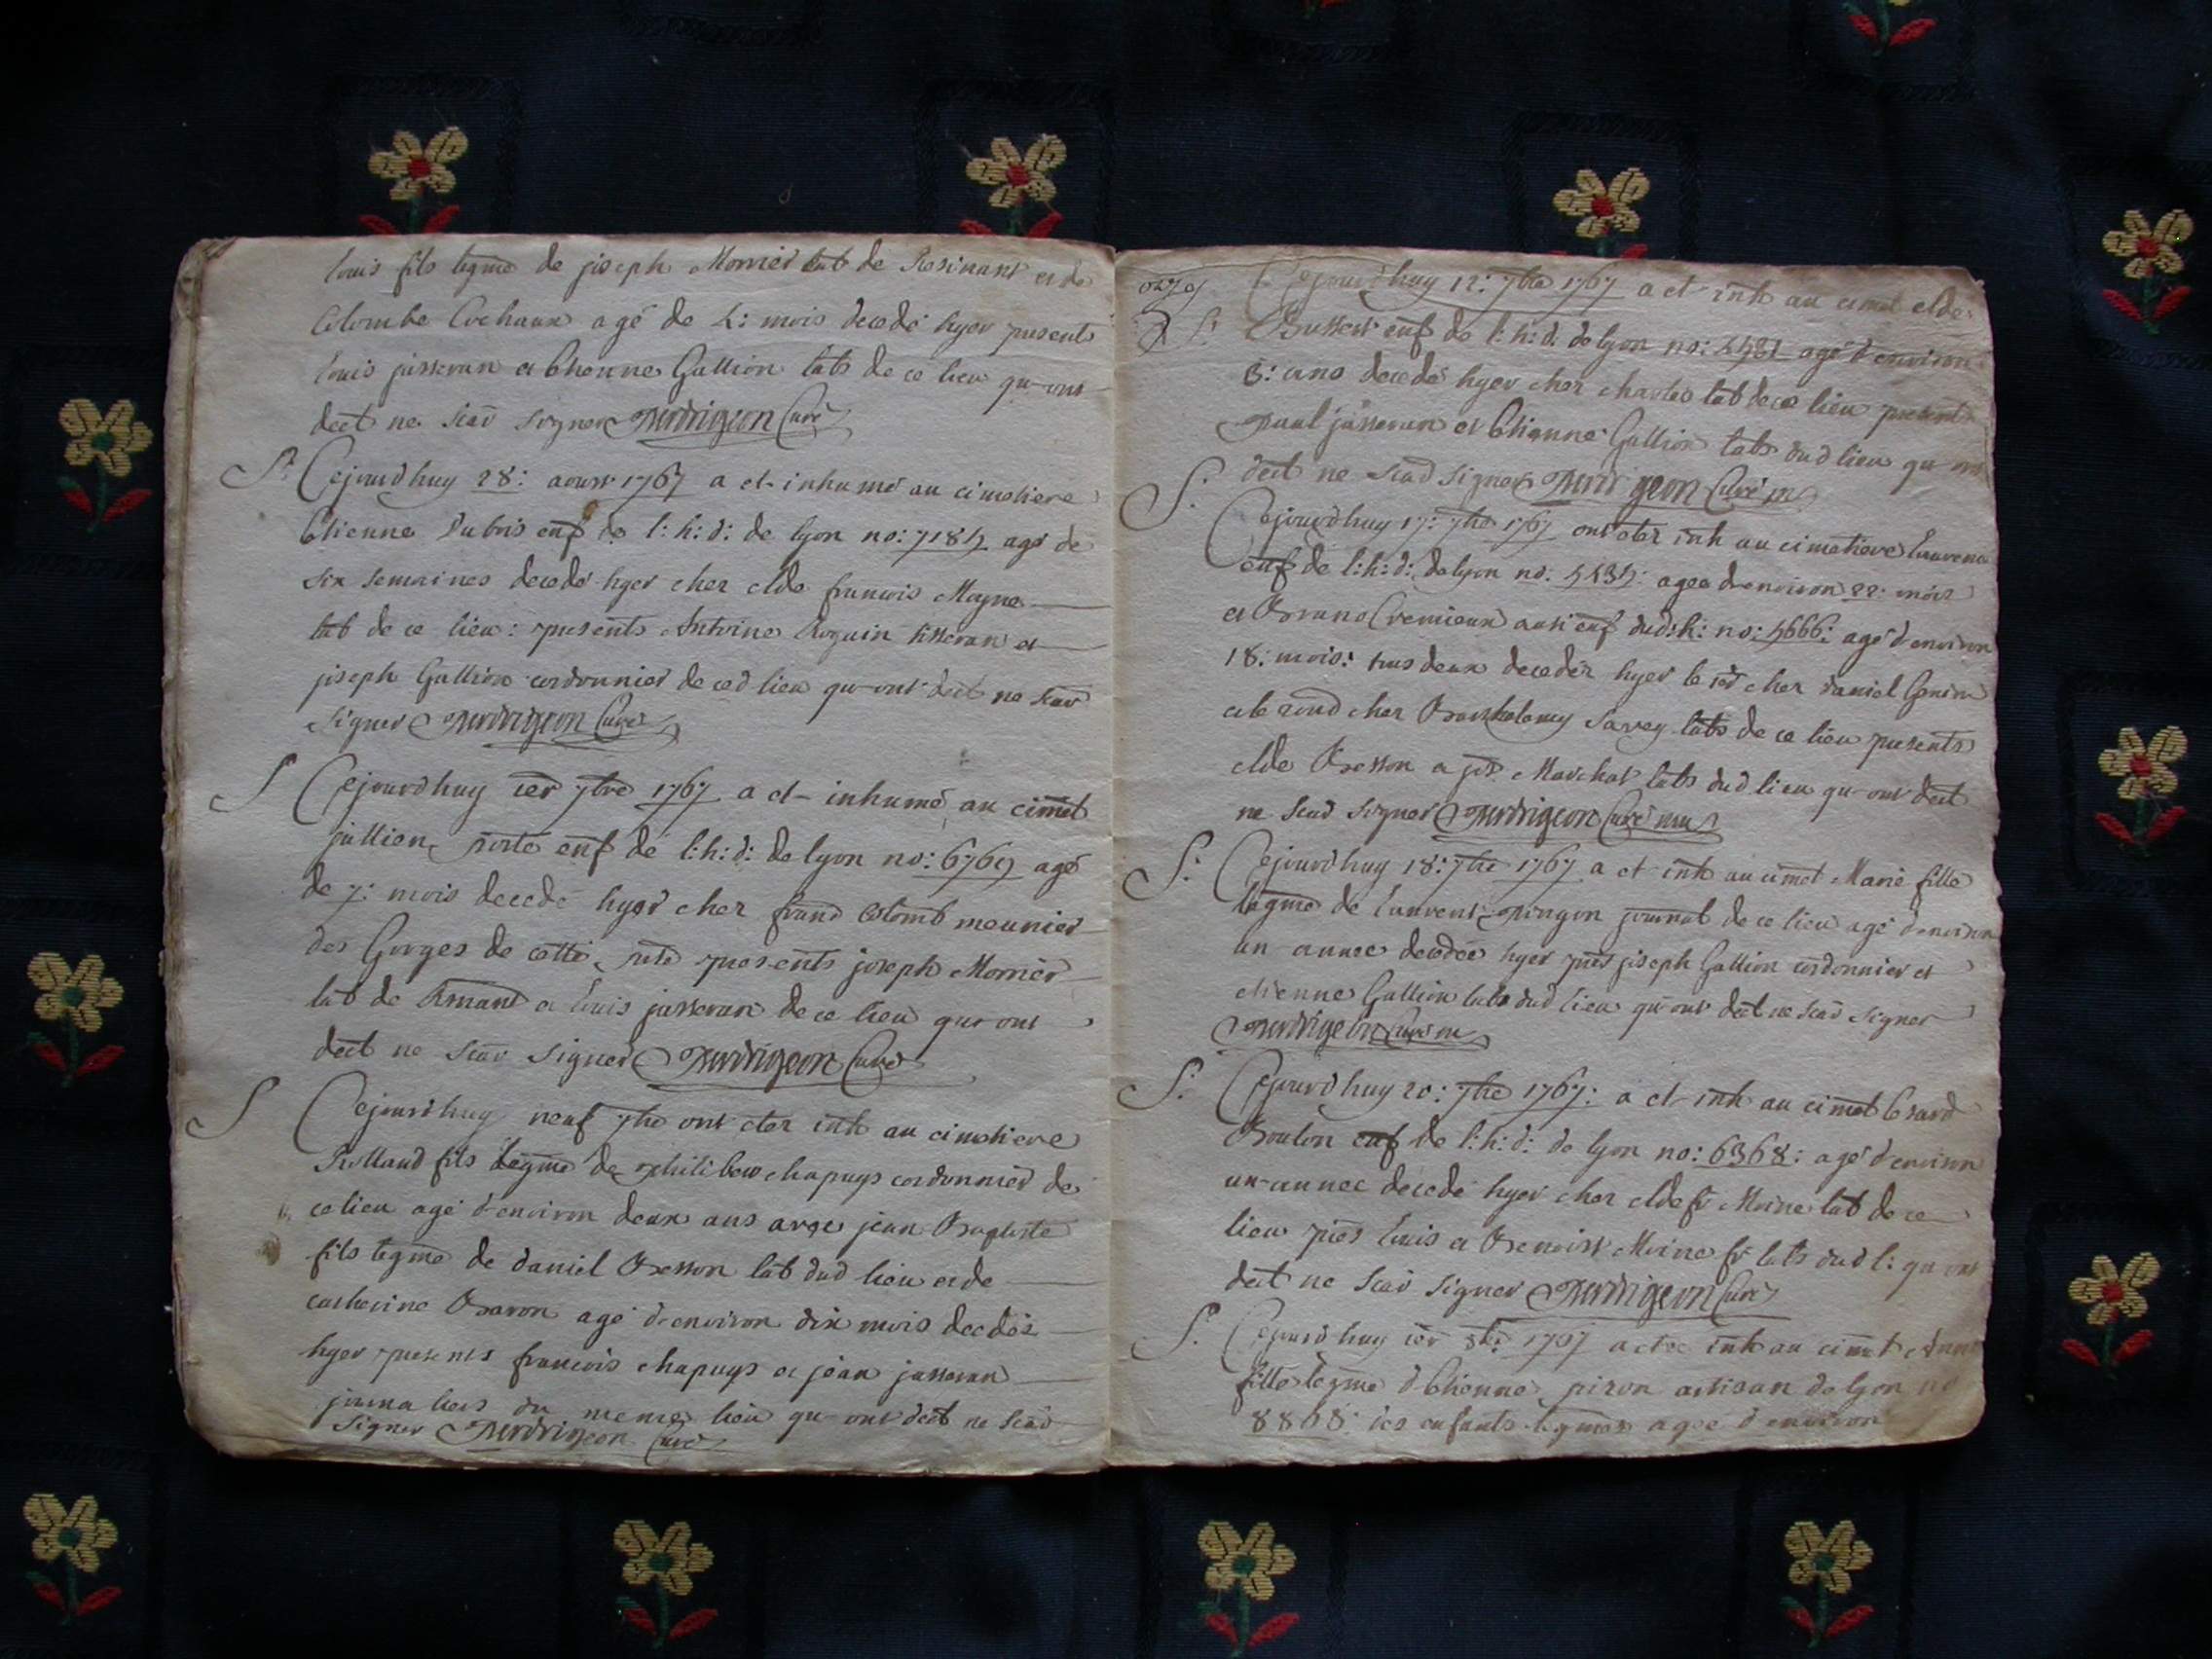 louis fils legme de joseph Morriér lab de Resinant et de
Colombe Cochaux agé de 4: mois decedé hyer presents
louis jasseran et Etienne Gallion labs de ce lieu qu-ont
deet ne scav signer Perdrigeon Curé
S: Cejourdhuy 28: aoust 1767 a et- inhumé au cimetiere
Etienne Dubois enf de l: h: d: de lyon no: 7184 agé de
six semaines decedé hyer cher clde francois Moyne
lab de ce lieu: presents Antoine Roguin tisseran et
joseph Gallion cordonnier de ced lieu qu-ont deet ne scav
signer Perdrigeon Curé
S Cejourdhuy ier 7bre 1767 a et- inhumé au cimet
jullien porte enf de l: h: d: de lyon no: 6769 agé
de 7: mois decedé hyer cher frand Colomb meunier
des Gorges de cette pete presents joseph Morriér
lab de et louis jasseran de ce lieu qu-ont
deet ne scav signer Perdrigeon Curé
S Cejourdhuy neuf 7bre ont eter inh au cimetiere
Rolland fils legme de philibew chapuys cordonniér de
ce lieu agé d-environ deux ans jean Baptiste
fils legme de daniel Besson lab dud lieu et de
catherine Baron agé d-environ dix mois decedés
hyer presents francois chapuys et jean jasseran
journaliers du meme lieu qu-ont deet ne scav
signer Perdrigeon Curé
S: Cejourdhuy 12: 7bre 1767 a et- inh au cimet clde
Brussert enf de l: h: d: de lyon no: 4481 agé d-environ
3: ans decedé hyer cher charles lab de ce lieu presents
paul jasseran et Etienne Gallion labs dud lieu qu-ont
deet ne scav signer Perdrigeon Curé
S: Cejourdhuy 17: 7bre 1767 ont eter inh au cimetiere
enf de l: h: d: de lyon no: 4434: ageé d-environ 22: mois
et Bruno Cremieux aussi enf dud: h: no: 4666: agé d-environ
18: mois: tous deux decedér hyer le ier cher daniel
et le 2ond cher Barthelemy Savey labs de ce lieu presents
clde Besson et Marchat labs dud lieu qu-ont deet
ne scav signer Perdrigeon Curé
S: Cejourdhuy 18: 7bre 1767 a et- inh au cimet Marie fille
legme de laurent journal de ce lieu agé d-environ
un annee decedeé hyer prés joseph Gallion cordonnier et
etienne Gallion labs dud lieu qu-ont deet ne scav signer
Perdrigeon Curé
S: Cejourdhuy 20: 7bre 1767: a et- inh au cimet
Boulon enf de l: h: d: de lyon no: 6368: agé d-environ
un-annee decedé hyer cher clde fr Moine lab de ce
lieu prés louis et Benoist Moine fr labs dud l: qu-ont
deet ne scav signer Perdrigeon Curé
S: Cejourdhuy ier 8bre 1767 a eteé inh au cimet
fille legme d-Etienne piron artisan de lyon no
8868: des enfants legmes ageé d-environ